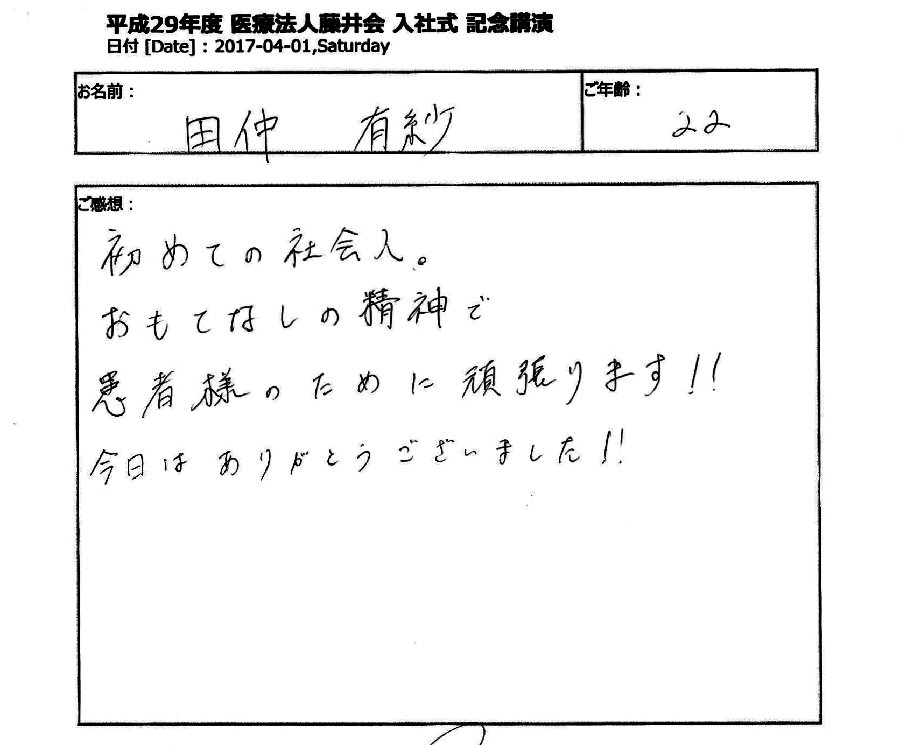 平成29年度 医療法人藤井会 入社式 記念講演
日付 [Date] : 2017-04-01,Saturday
お名前：
田仲 有紗
ご年齢：
22
ご感想：
初めての社会人。
おもてなしの精神で
患者様のために頑張ります!!
今日はありがとうございました!!